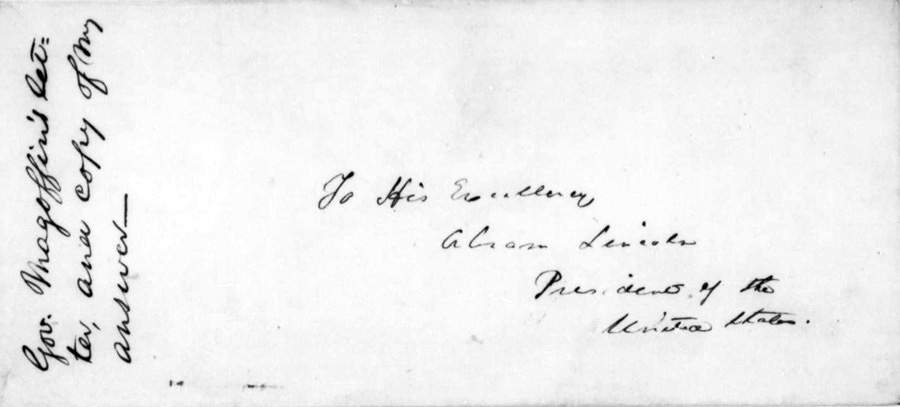 Gov. Magoffin's let=
ter, and copy of my
answer—
To His Excellency
Abram Lincoln
President of the
United States.